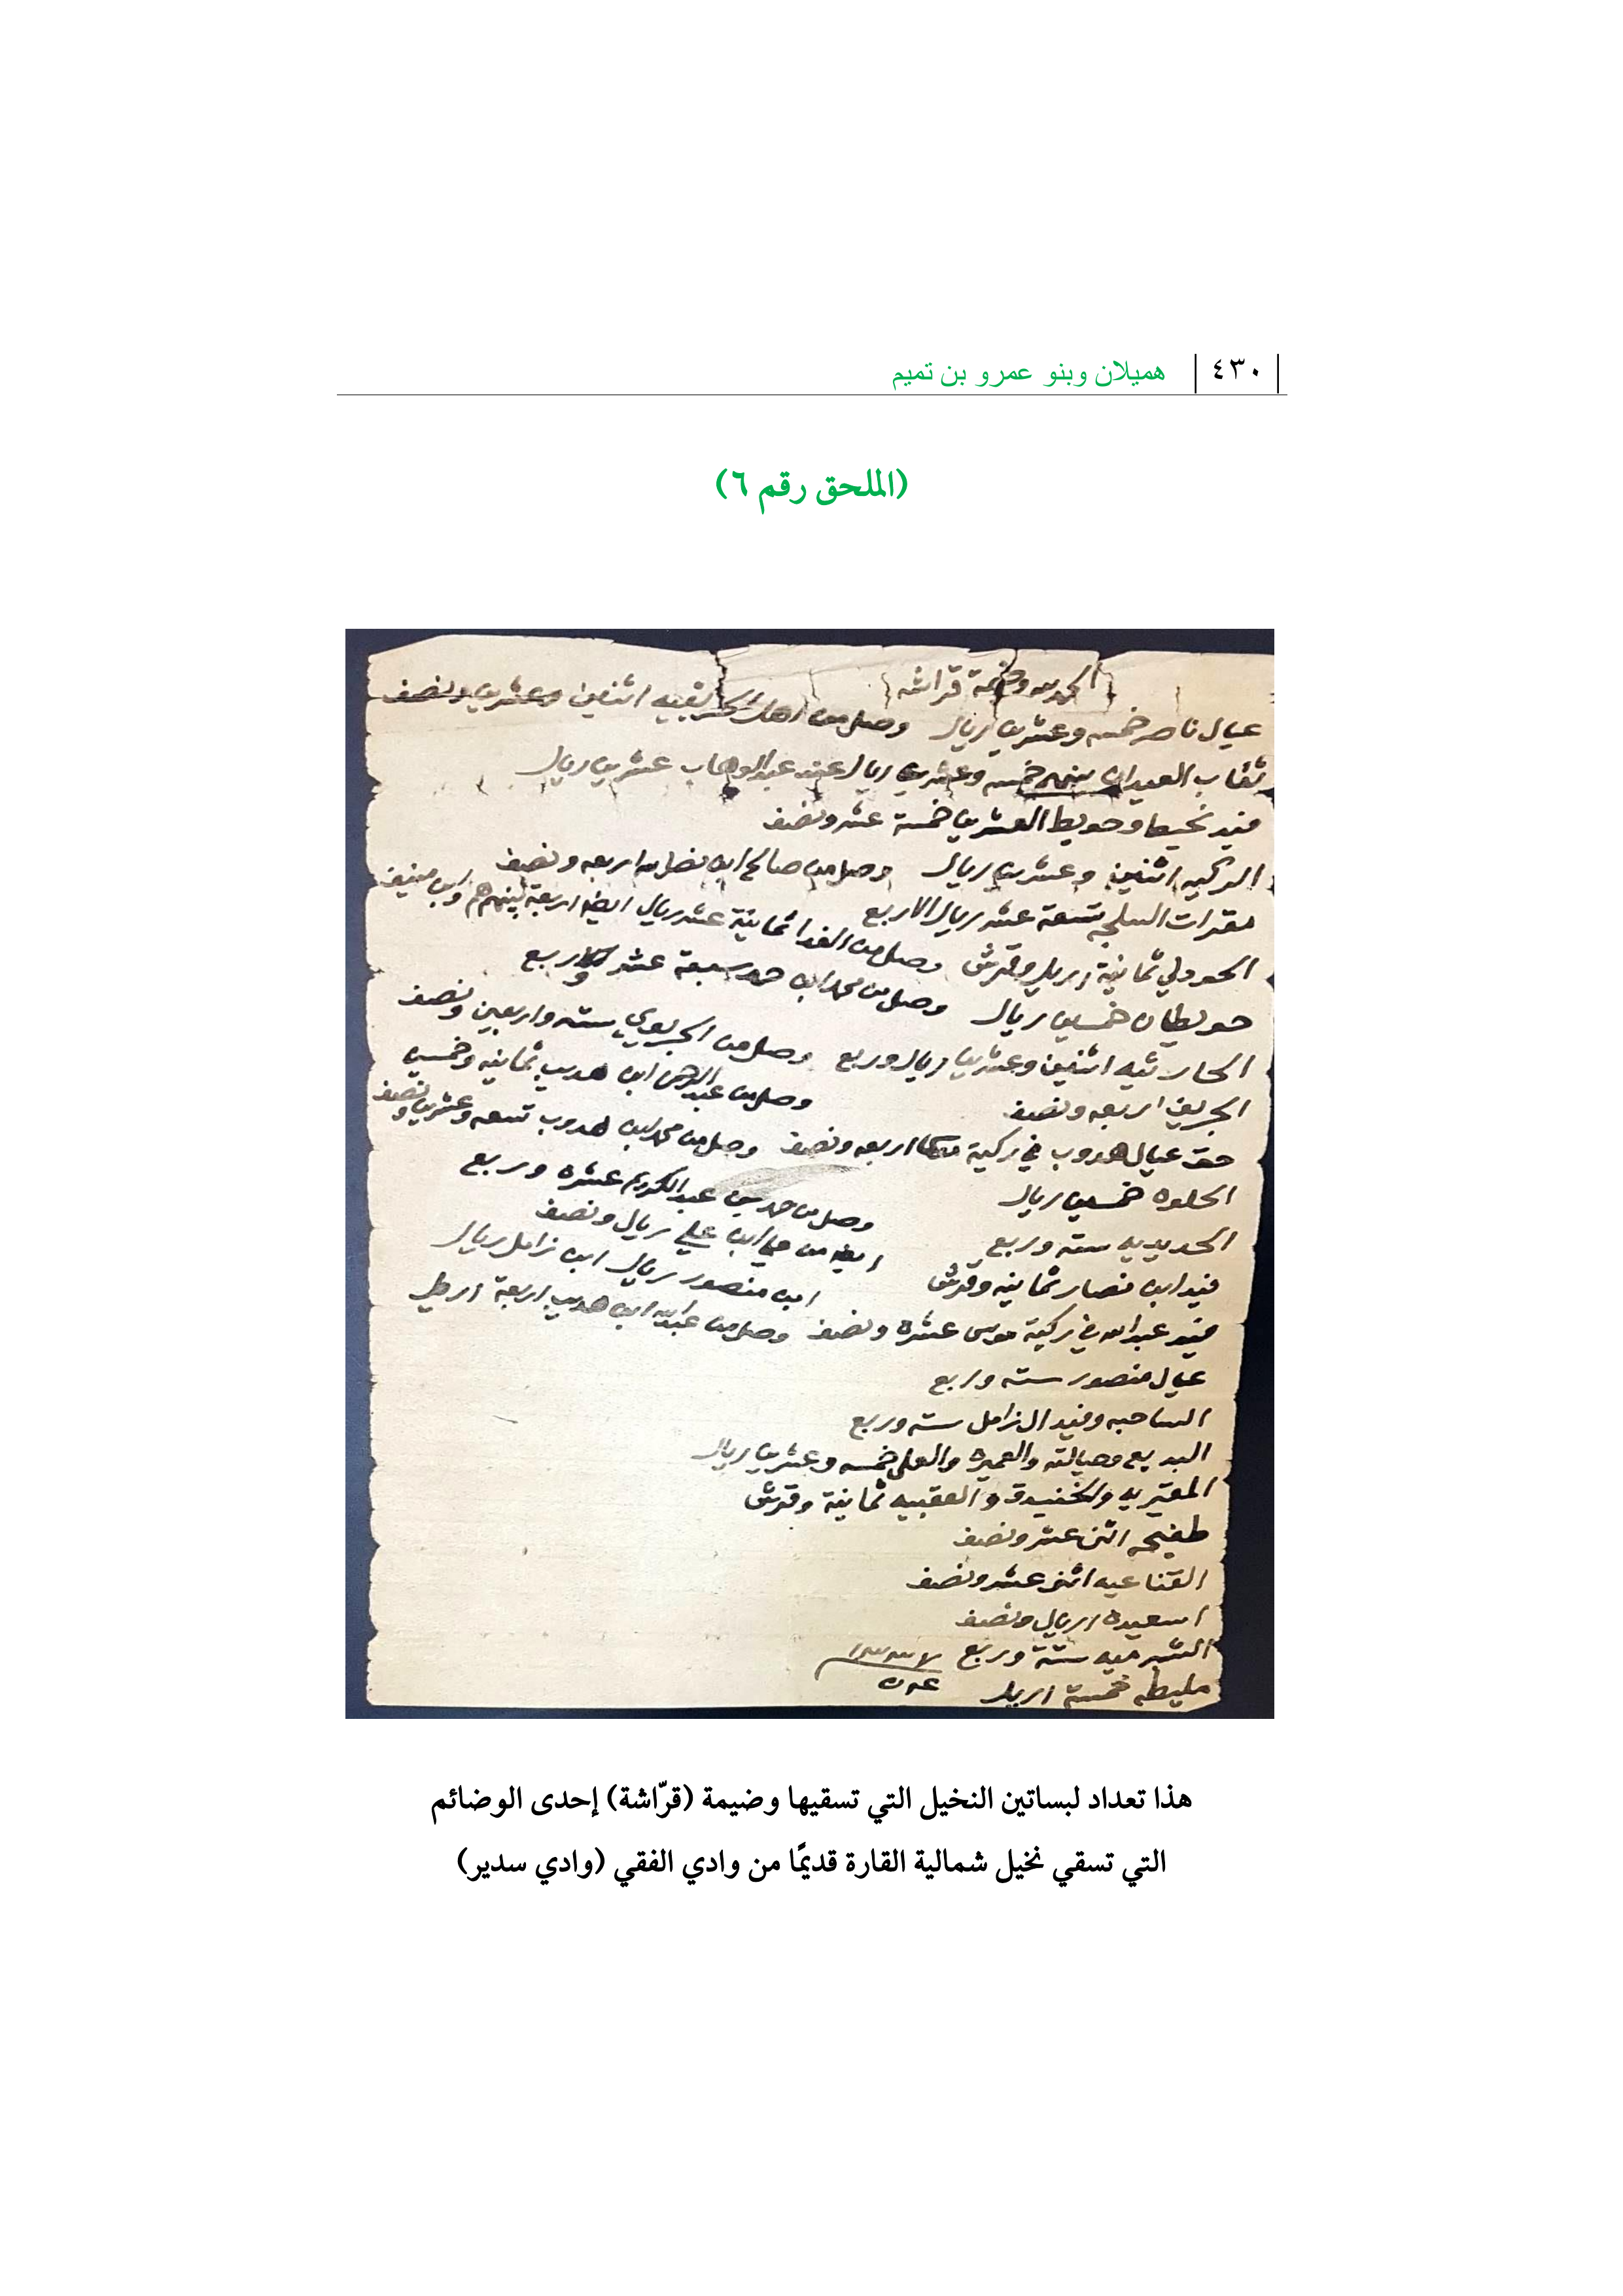 ٤٣٠ هميلان وبنو عمرو بن تميم
(الملحق رقم ٦)
الحمد لله وضيمة قراشه
عيال ناصر خمسه وعشرين ريال وصل من اهل اثنين وعشرين ونصف
العيدان منهم خمسه وعشرين ريال عند عبدالوهاب عشرين ريال
فيد نحيط وحويط العشرين خمسة عشر ونصف
الركيه اثنين وعشرين ريال وصل من صالح ابن نصرالله اربعه ونصف
مقرات السلجه تسعة عشر ريال الا ربع
الحودلي ثمانية اريل وقرش وصل من الفدا ثمانية عشر ريال ايضا اربعة
حويطان خمسين ريال وصل من محمد ابن حمد سبعة عشر وربع
الحارثيه اثنين وعشرين ريال وربع وصل من الجريوي سته واربعين ونصف
الجريف اربعه ونصف وصل من عبدالرحمن ابن هديب ثمانيه وخمسين
حق عيال هدوب في ركية اربعه ونصف وصل من محمد ابن هدوب تسعه وعشرين ونصف
الحلوه خمسين ريال وصل من حمد بن عبدالكريم عشره وربع
الحديديه سته وربع ايضا من علي ريال ونصف
فيد ابن نصار ثمانيه وقرش ابن منصور ريال ابن زامل ريال
فيد عبدالله في ركية موسى عشره ونصف وصل من عبدالله ابن هديب اربعة اريل
عيال منصور سته وربع
الساحبه وفيد ال زامل سته وربع
البديع وصيالته والعميره والعلي خمسه وعشرين ريال
المقيريه والخنيدق والعقبيه ثمانية وقرش
طفيحه اثنى عشر ونصف
القناعيه اثنى عشر ونصف
اسعيده اريال ونصف
الشرميه ستة وربع
مليطه خمسة اريل
هذا تعداد لبساتين النخيل التي تسقيها وضيمة (قرّاشة) إحدى الوضائم
التي تسقي نخيل شمالية القارة قديمًا من وادي الفقي (وادي سدير)